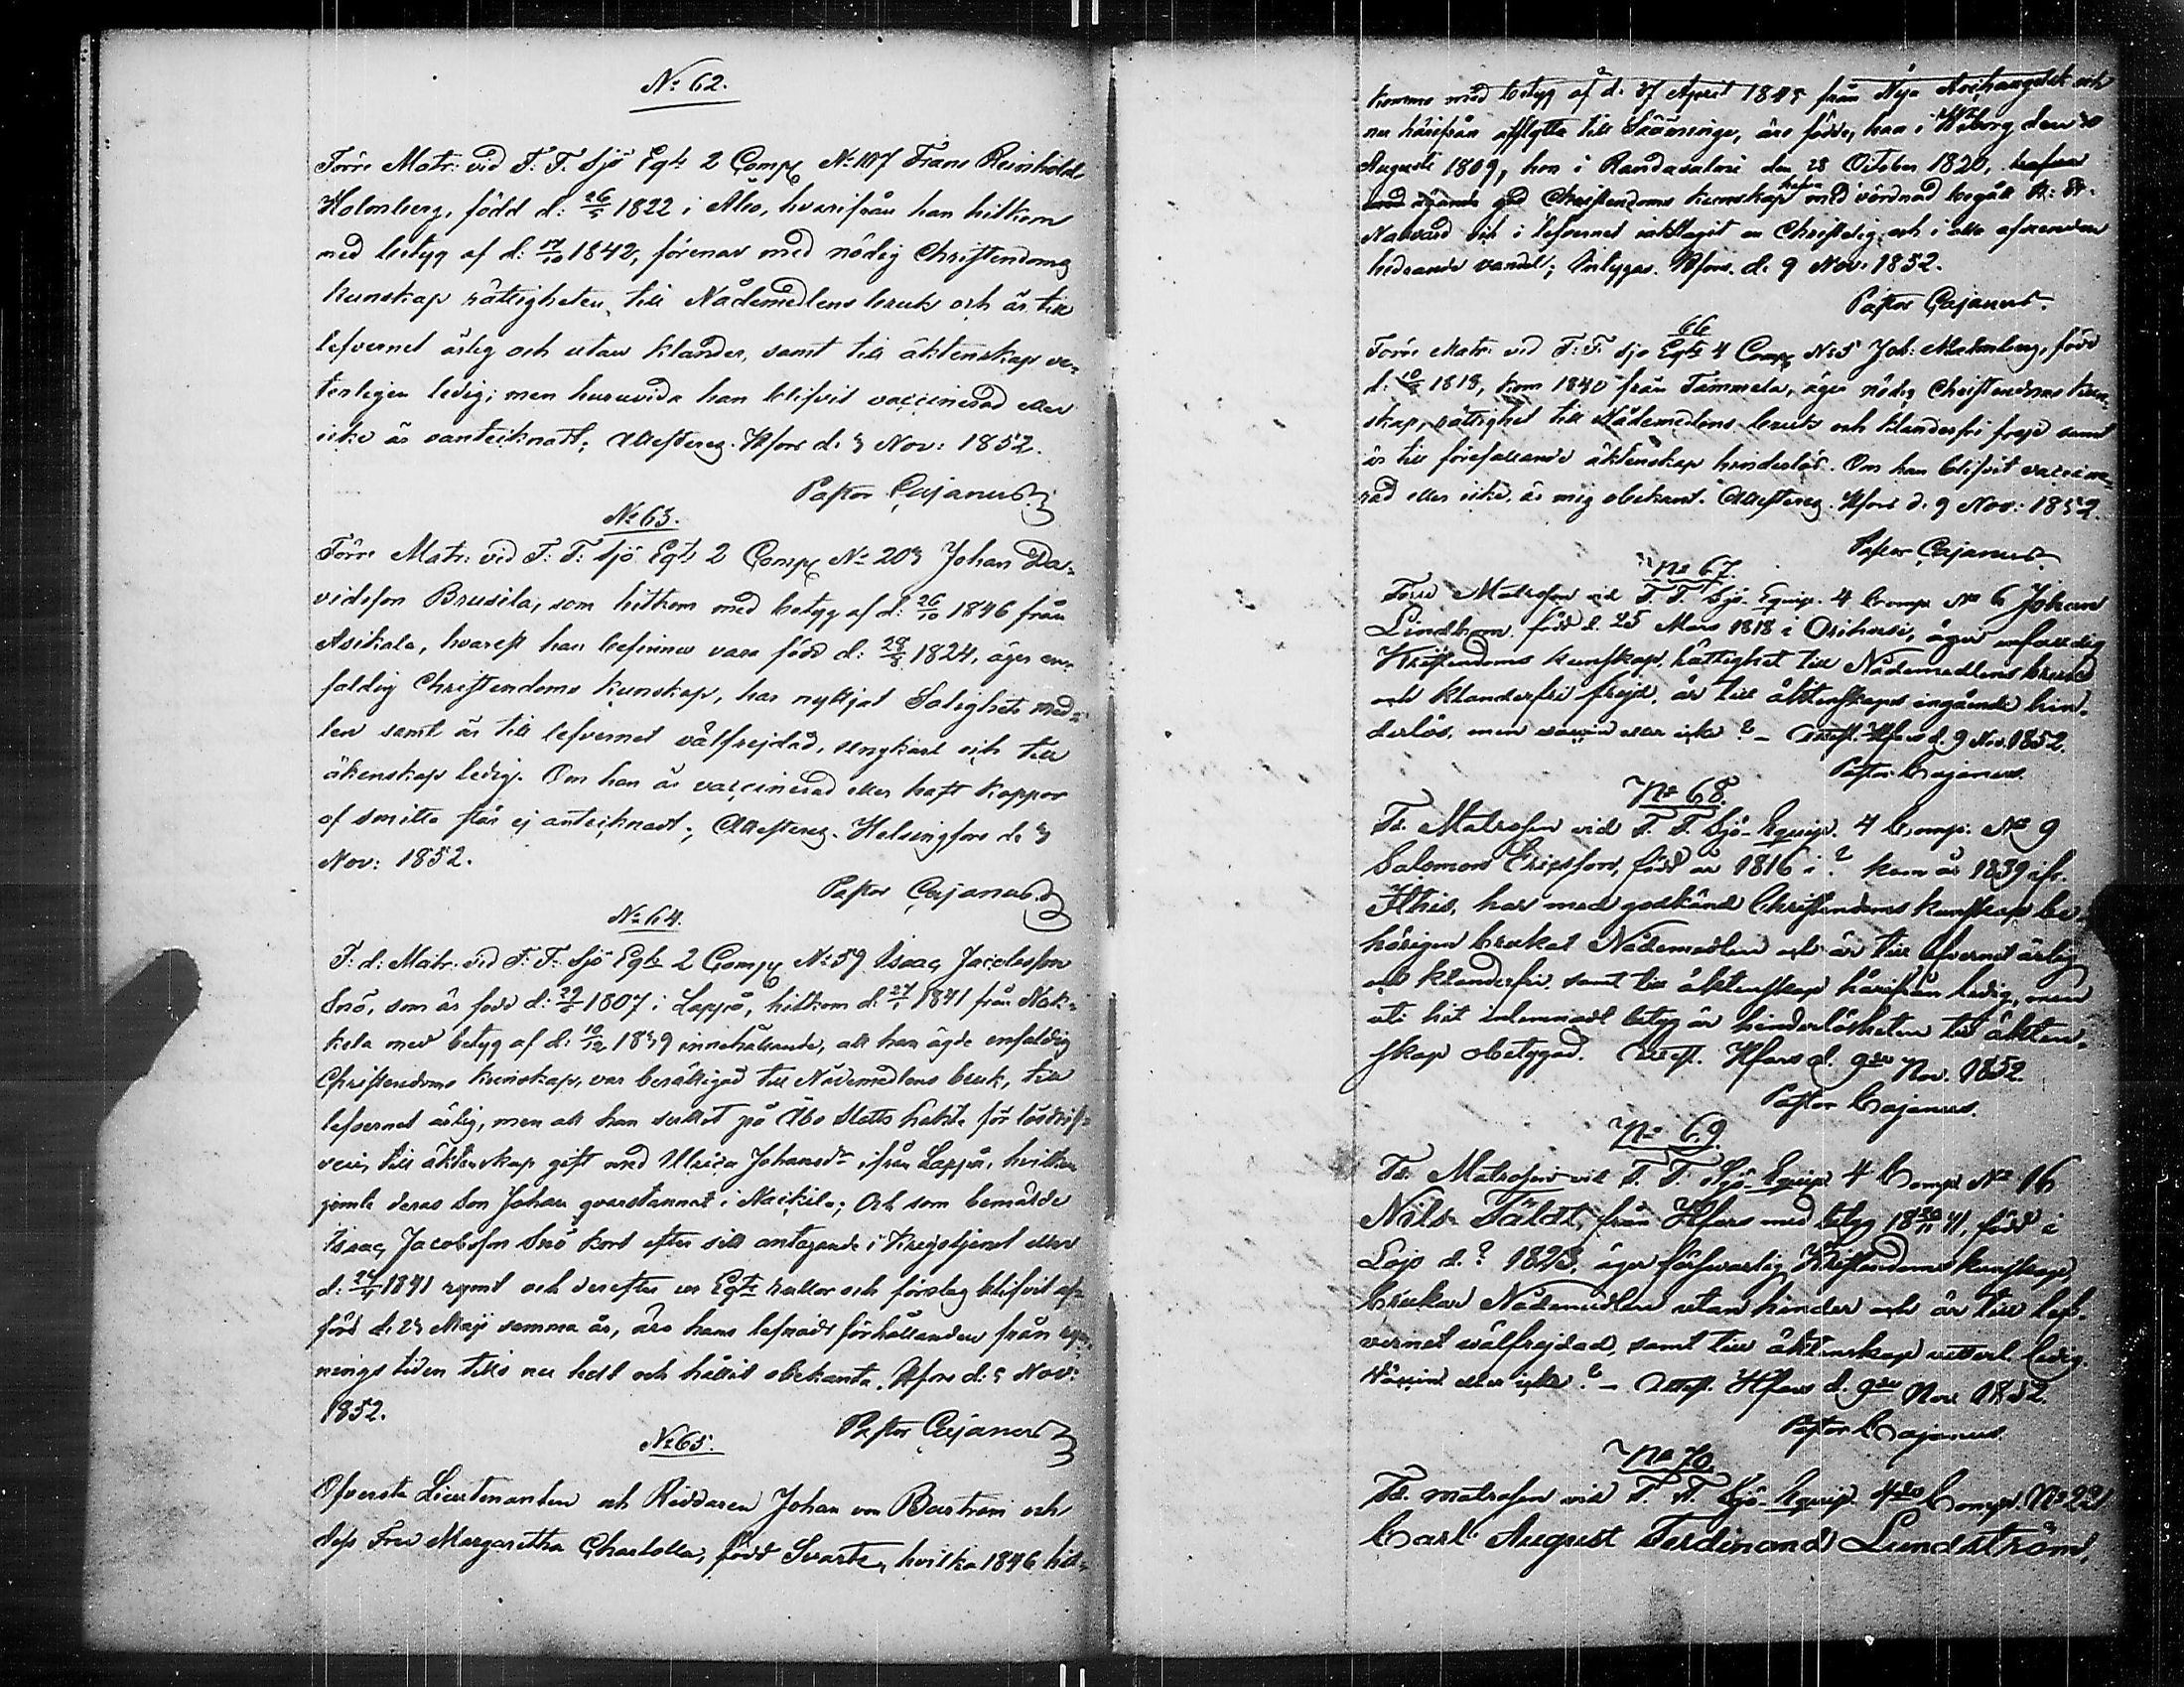 No 62.
Förre Matr: vid F: F. Sjö Eqts 2 Comp No 107 Frans Reinhold
Holmberg, född d: 26/5 1822 i Åbo, hvarifrån han hitkom
med betyg af d: 17/10 1842, förenar med nödig Christendoms
kunskap rättigheten till Nådemedlens bruk och är till
lefvernet ärlig och utan klander, samt till äktenskap ve-
terligen ledig; men huruvida han blifvit vaccinerad eller
icke är oantecknadt; Attesteras. Hfors d. 9 Nov: 1852.
Pastor Cajanus
No 63.
Förre Matr: vid F: F: Sjö Eqts 2 Comp No 209 Johan Da-
vidsson Brusila, som hitkom med betyg af d: 26/10 1846 från
Asikala, hvarest han befinnes vara född d: 28/8 1824, äger en-
faldig Christendoms kunskap, har nyttjat Salighets med-
len samt är till lefvernet välfrejdad, ungkarl och till
äktenskap ledig. Om han är vaccinerad eller haft koppor
af smitta står ej antecknadt; Attesteras. Helsingfors d. 9
Nov: 1852.
Pastor Cajanus.
No 64.
F. d: Matr: vid F: F: Sjö Eqts 2 Comp No 59 Isaac Jacobsson
Snö, som är född d: 29/5 1807 i Lappo, hitkom d: 27/1 1841 från Nak-
kila med betyg af d: 10/12 1839 innehållande, att han ägde enfaldig
Christendoms kunskap, var berättigad till Nådemedlens bruk, till
lefvernet ärlig, men att han suttit på Åbo slotts häkte för lösdrif-
veri, till äktenskap gift med Ulrica Johansdr ifrån Lappo, hvilken
jemte deras Son Johan qvarstannat i Nackila; Och som bemälde
Isaac Jacobsson Snö kort efter sitt antagande i Krigstjenst eller
d: 1841 rymt och derefter ur Eqts rullor och förslag blifvit af-
förd d. 23 Maji samma år, äro hans lefnads förhållanden från rym-
nings tiden tills nu helt och hållit obekanta. Hfors d: 9 Nov:
1852.
Pastor Cajanus
No 65.
Öfverste Lieutenanten och Riddaren Johan von Bartram och
dess Fru Margaretha Charlotta, född Svartz, hvilka 1846 hit-
kommo med betyg af d. 27 April 1845 från Nya Archangelsk och
nu härifrån afflytta till Sääminge, äro födde, han i Wiborg den
Augusti 1809, hon i Randasalmi den 28 October 1820,
god Christendoms kunskap hafva med vördnad begått H: H:
Nattvard och i lefvernet iakttagit en Christelig och i alla afseenden
hedrande vandel; Intygar. Hfors. d. 9 Nov: 1852.
Pastor Cajanus.
66
Förre Matr: vid F: F. Sjö Eqts 4 Comp No 5 Joh: Malmberg, född
d: 10/8 1818, kom 1840 från Tammela, äger nödig Christendoms kun-
skap, rättighet till Nådemedlens bruk och klanderfri frejd samt
är till förefallande äktenskap hinderslös. Om han blifvit vaccine-
rad eller icke, är mig obekant. Attesteras. Hfors d. 9 Nov: 1852.
Pastor Cajanus
No 67.
Förre Matrosen vid F. F. Sjö-Equip. 4 Comp No 6 Johan
Lindbom, född d. 25 Mars 1818 i Orihvesi, äger enfaldig
Kristendoms kunskap, rättighet till Nådemedlens bruk
och klanderfri frejd, är till äktenskaps ingående hin-
derlös, men vaccin eller icke? – Attest. Hfors d. 9 Nov. 1852.
Pastor Cajanus.
No 68.
Fd. Matrosen vid F. F. Sjö-Equip. 4 Comp. No 9
Salomon Ericsson, född år 1816 i? kom år 1839 ifr.
Ithis, har med godkänd Christendoms kunskap be-
hörigen brukat Nådemedlen och är till lefvernet ärlig
och klanderfri samt till äktenskap härifrån ledig, men
uti hit inlemnadt betyg är hinderlösheten till äkten-
skap obetygad. Attest. Hfors d. 9de Nov. 1852.
Pastor Cajanus.
No 69.
Fd. Matrosen vid F. F. Sjö-Equip. 4 Comp No 16
Nils Täldt, från Hfors med betyg 18 20/11 41, född i
Lojo d.? 1823, äger försvarlig Kristendoms kunskap,
brukar Nådemedlen utan hinder och är till lef-
vernet välfrejdad, samt till äktenskap vetterl. ledig.
Vaccin. eller icke? – Attest. Hfors d. 9de Nov. 1852.
Pastor Cajanus
No 70.
Fd. matrosen vid F. F. Sjö-Equip. 4de Comp. No 22
Carl August Ferdinand Lundström,